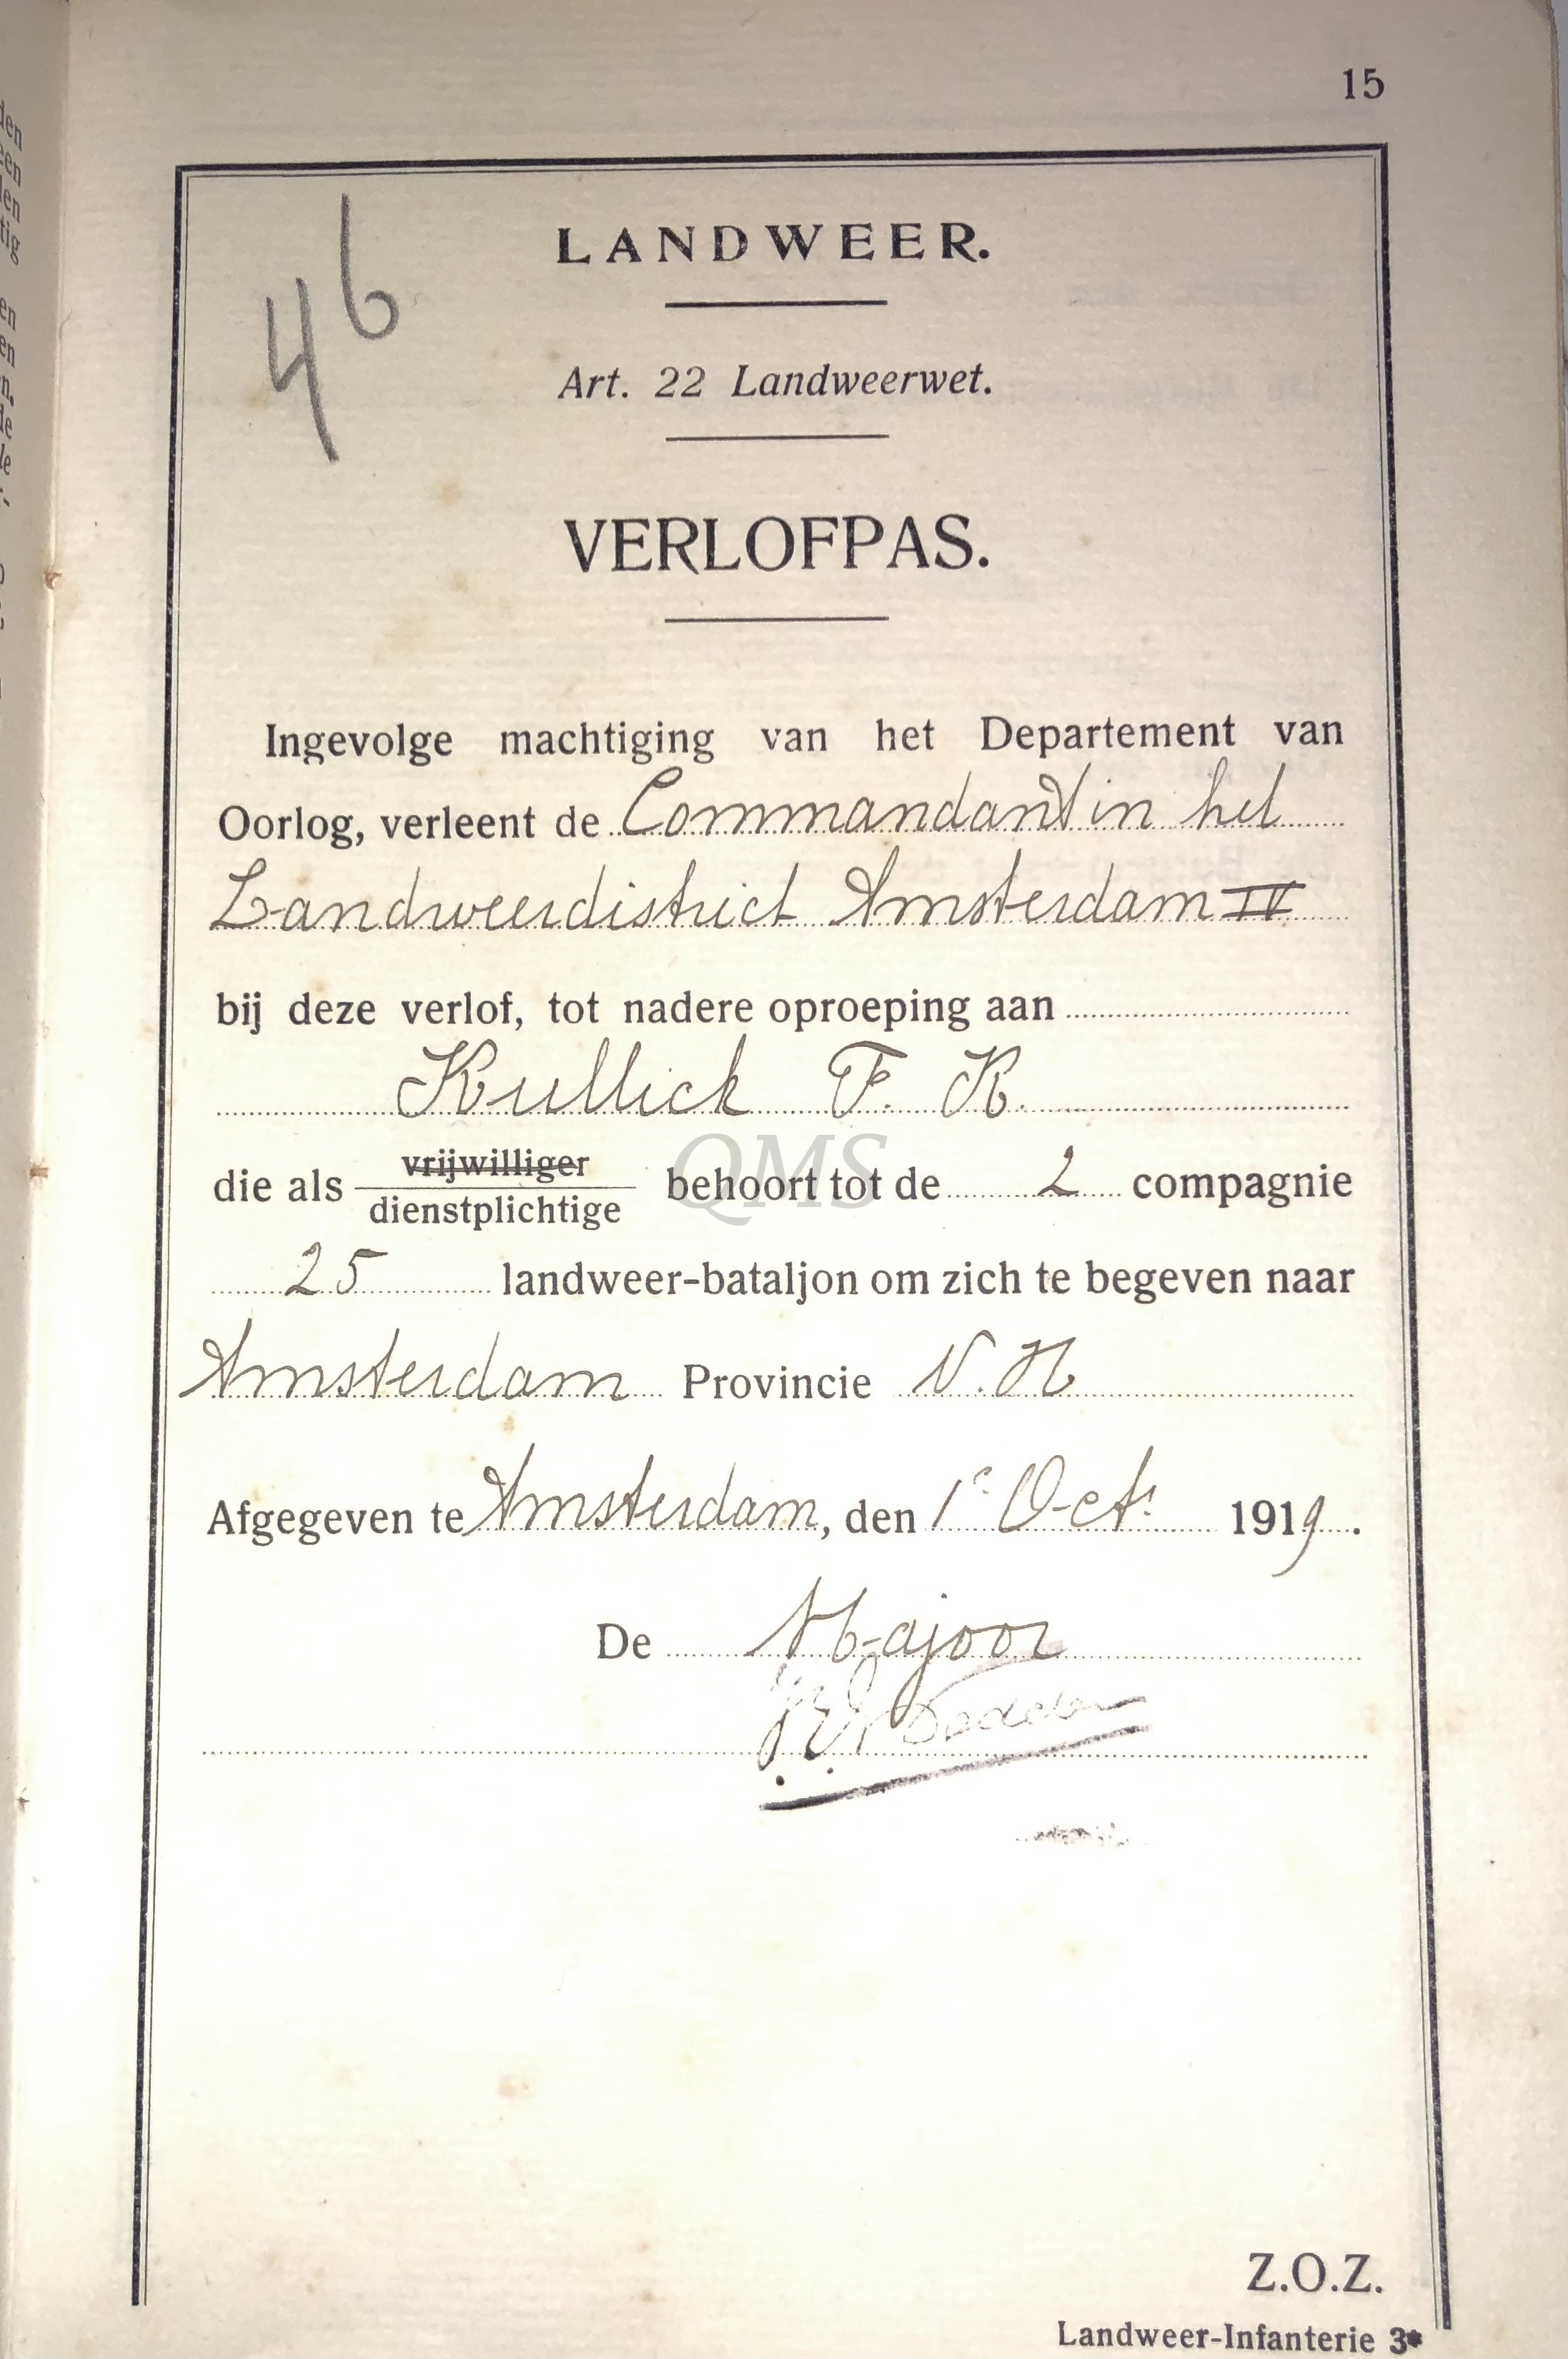 15
LANDWEER.
46
Art. 22 Landweerwet.
VERLOFPAS.
Ingevolge machtiging van het Departement van
Oorlog, verleent de Commandant in het
Landweerdistrict Amsterdam IV
bij deze verlof, tot nadere oproeping aan
Kullick F. K.
die als vrijwilliger behoort tot de 2 compagnie
dienstplichtige
QMS
25 landweer-bataljon om zich te begeven naar
Amsterdam Provincie N. H
Afgegeven te Amsterdam, den 1e Oct. 1919.
De Majoor
Z.O.Z.
Landweer-Infanterie 3*